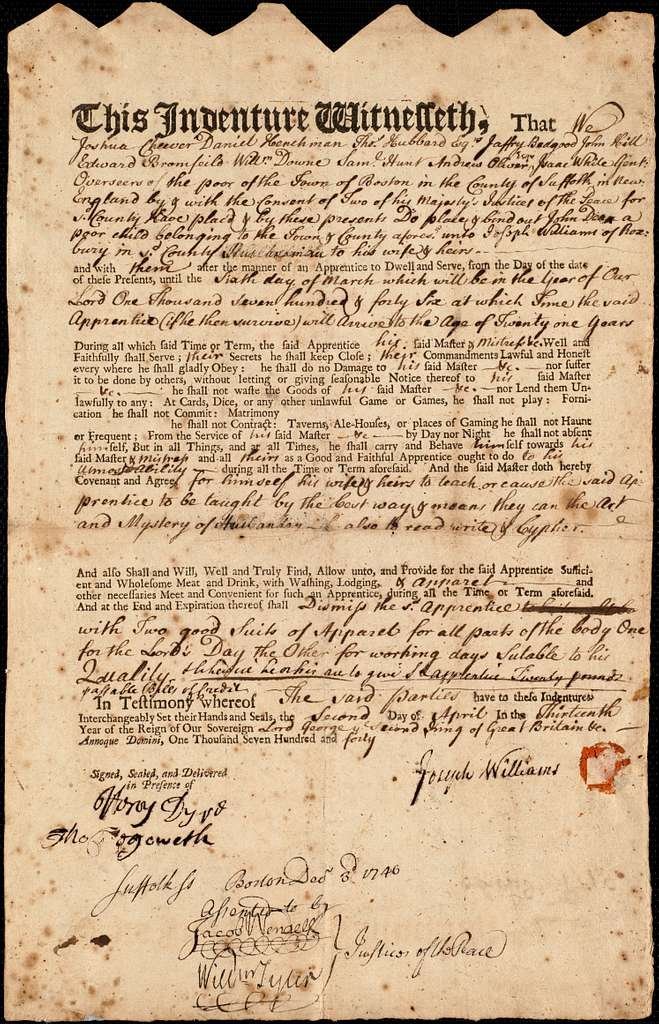 This Indenture Witnesseth, That We
Joshua Cheever Daniel Henchman Thos. Hubbard Esqrs. Jeffry Bedgood John Hill
Edward Bromfeild Willm Downe Saml. Hunt Andrew Oliver Isaac White Gent.
Overseers of the poor of the Town of Boston in the County of Suffolk in New
England by & with the Consent of Two of his Majesty's Justices of the Peace for
sd. County Have placd & by these presents Do place & bind out John a
poor child belonging to the Town & County aforesd. unto Joseph Williams of Rox
bury in sd. County to his wife & heirs
and with them after the manner of an Apprentice to Dwell and Serve, from the Day of the date
of these Presents, until the Sixth day of March which will be in the Year of Our
Lord One Thousand seven hundred & forty Six at which Time the said
Apprentice (if he then survive) will Arrive to the Age of Twenty one Years
During all which said Time or Term, the said Apprentice his said Master & Mistress &c. Well and
Faithfully shall Serve; their Secrets he shall keep Close; their Commandments Lawful and Honest
every where he shall gladly Obey: he shall do no Damage to his said Master &c. nor suffer
it to be done by others, without letting or giving seasonable Notice thereof to his said Master
&c. he shall not waste the Goods of his said Master &c. nor Lend them Un-
lawfully to any: At Cards, Dice, or any other unlawful Game or Games, he shall not play: Forni-
cation he shall not Commit: Matrimony
he shall not Contract: Taverns, Ale-Houses, or places of Gaming he shall not Haunt
or Frequent; From the Service of his said Master &c by Day nor Night he shall not absent
himself, But in all Things, and at all Times, he shall carry and Behave himself towards his
said Master & Mistress and all theirs as a Good and Faithful Apprentice ought to do to his
utmost ability during all the Time or Term aforesaid. And the said Master doth hereby
Covenant and Agree for himself his wife & heirs to teach or cause the said Ap
prentice to be taught by the best way & means they can the Art
and Mystery of Husbandry also to read write & Cypher.
And also Shall and Will, Well and Truly Find, Allow unto, and Provide for the said Apprentice Suffici-
ent and Wholesome Meat and Drink, with Washing, Lodging, & apparel and
other necessaries Meet and Convenient for such an Apprentice, during all the Time or Term aforesaid.
And at the End and Expiration thereof shall Dismiss the sd. Apprentice
with Two good Suits of Apparel for all parts of the body One
for the Lord's Day the Other for working days Sutable to his
Quality to give sd. apprentice Twenty pounds
passable Bills of Credit
In Testimony whereof The said parties have to these Indentures
Interchangeably Set their Hands and Seals, the Second Day of April In the Thirteenth
Year of the Reign of Our Sovereign Lord George ye Second King of Great Britain &c.
Annoque Domini, One Thousand Seven Hundred and forty
Signed, Sealed, and Delivered
in Presence of
Joseph Williams
Suffolk ss Boston Decr. 3d. 1740
Assented to by
Jacob Wendell
Justices of the Peace